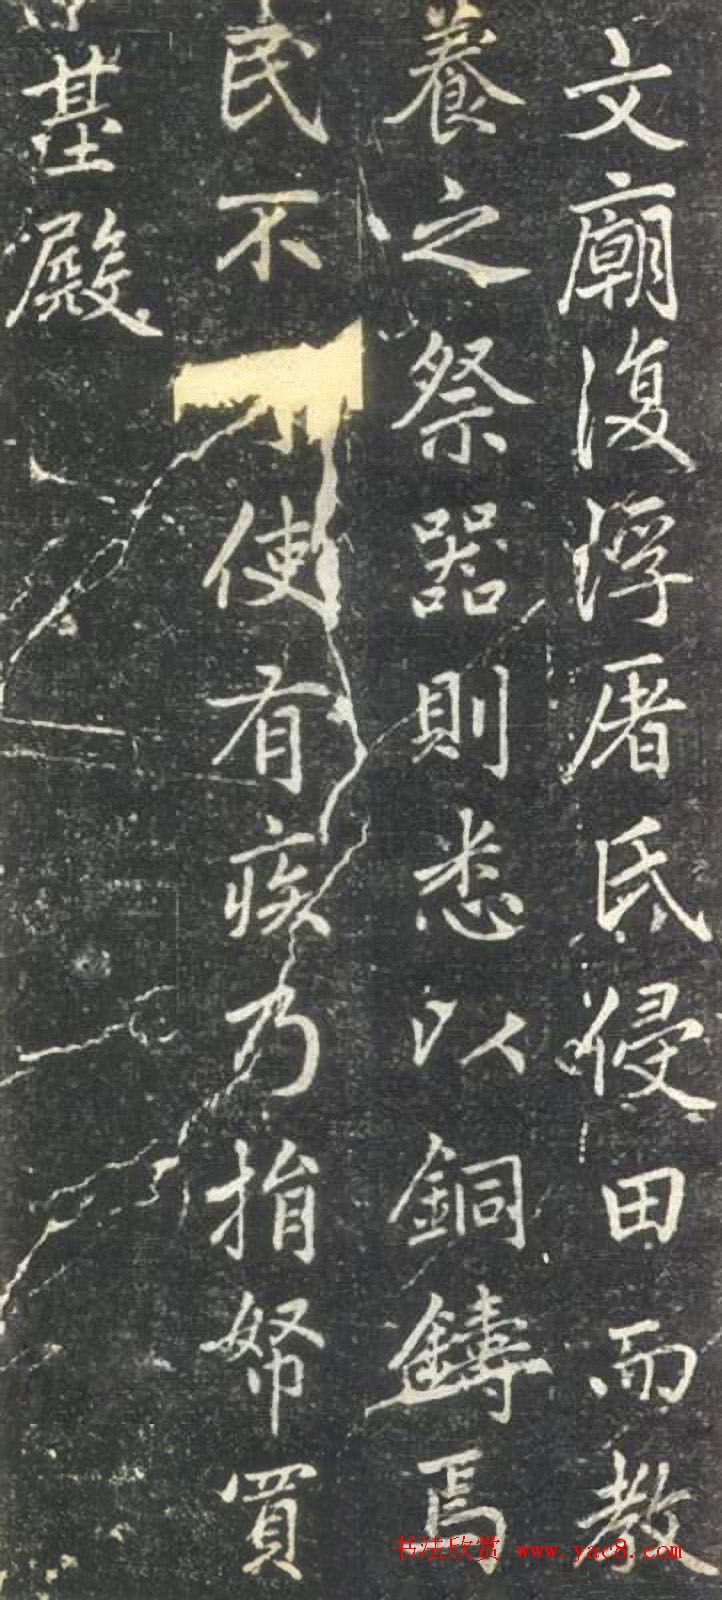 文廟復浮屠氏侵田而教
養之祭器則悉以銅鑄焉
民不使有疾乃捐帑買
基殿
书法欣赏 www.yac8.com